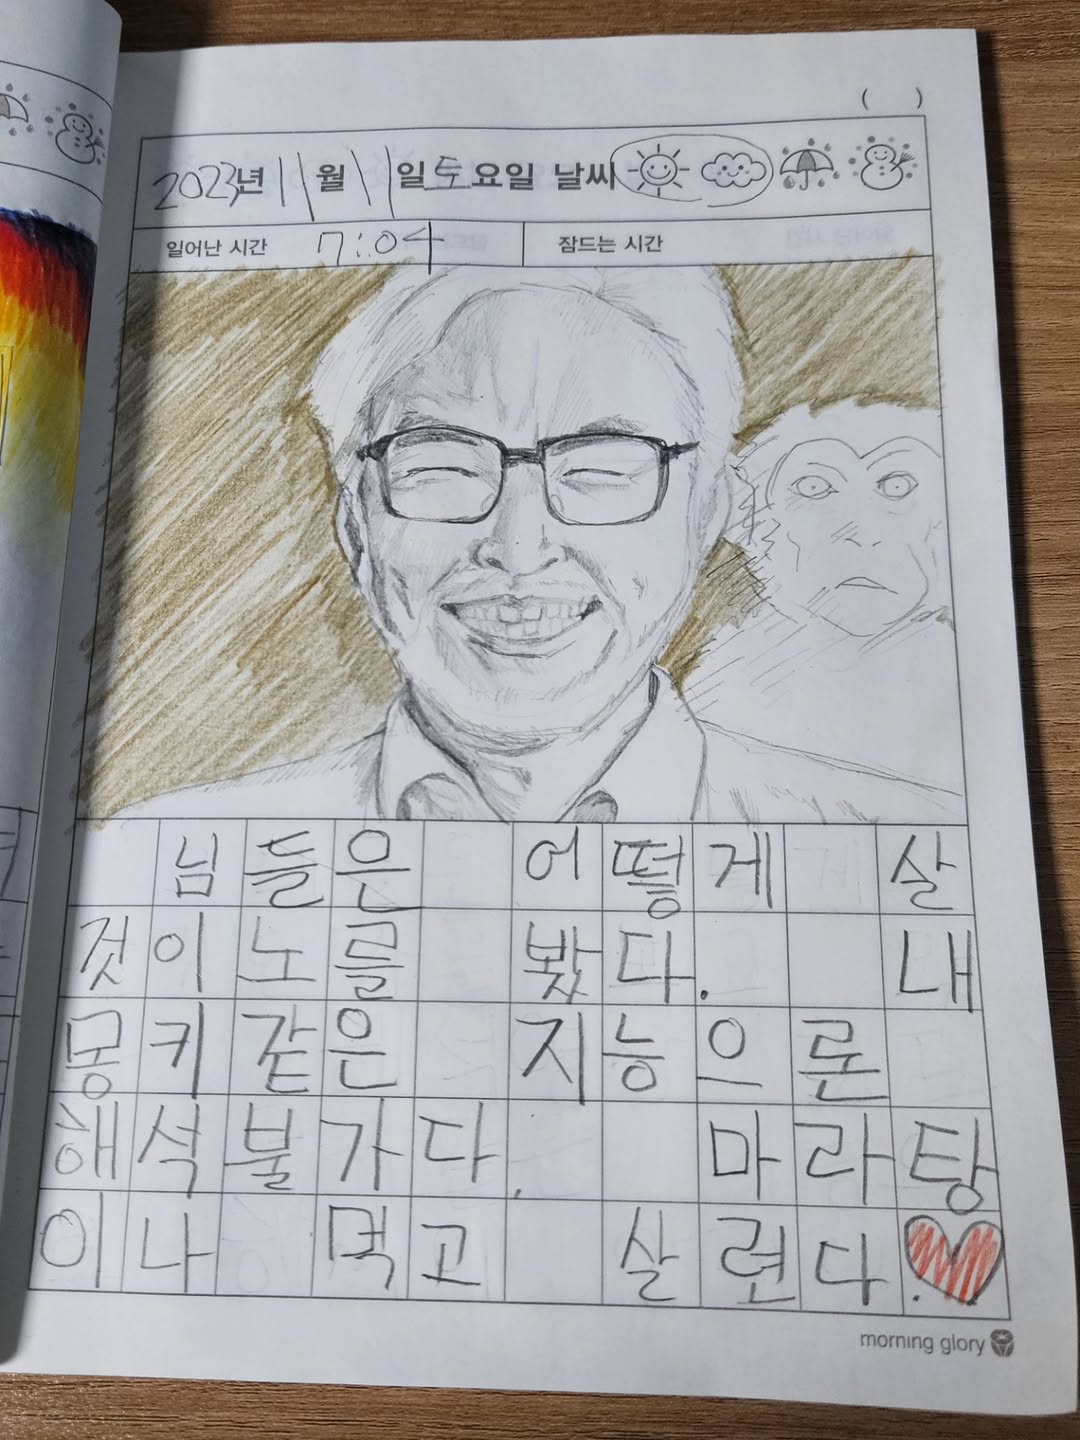 ( )
2023년 11월 11일 토요일 날씨
일어난 시간 7:04 잠드는 시간
님들은 어떻게 살
것이노를 봤다. 내
몽키같은 지능으론
해석불가다. 마라탕
이나 먹고 살련다..
morning glory